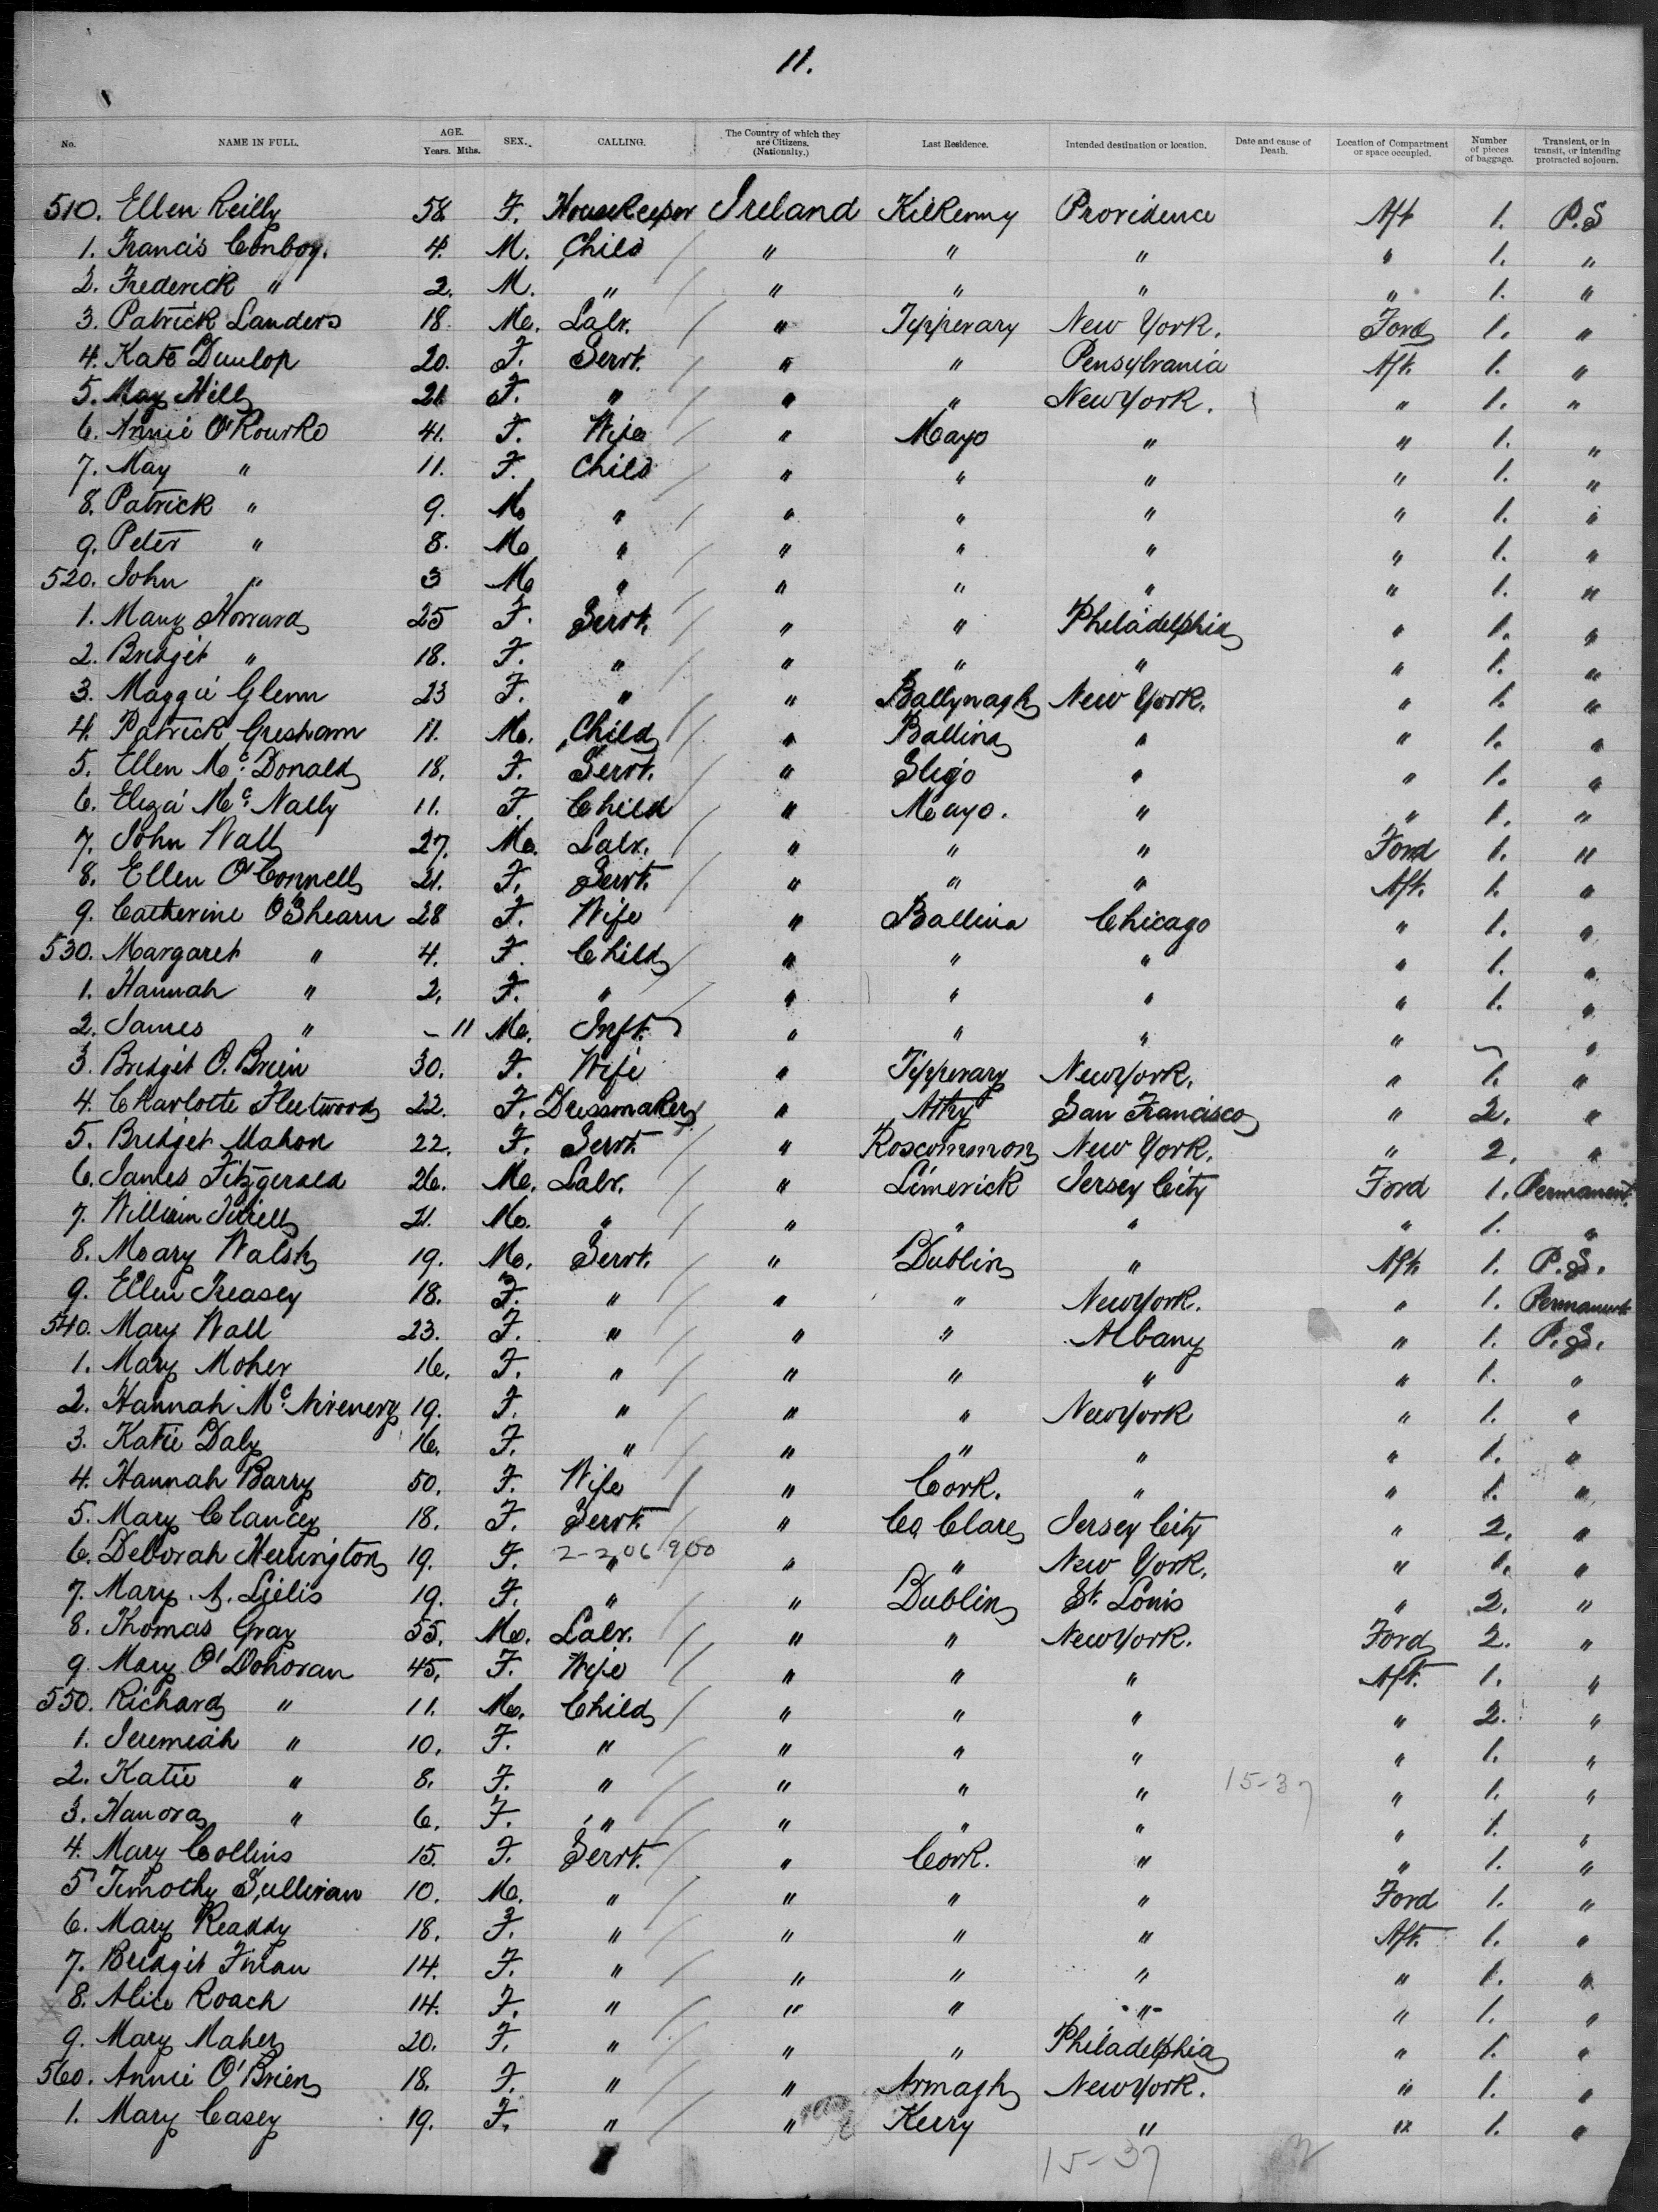 11.
No. NAME IN FULL. AGE. Years. Mths. SEX. CALLING. The Country of which they are Citizens. (Nationalty.) Last Residence. Intended destination or location. Date and cause of Death. Location of Compartment or space occupied. Number of pieces of baggage. Transient, or in transit, or intending protracted sojourn.
510. Ellen Reilly 58 F. Housekeeper Ireland Kilkenny Providence Aft 1. P.S
1. Francis Conboy. 4. M. Child " " " " 1. "
2. Frederick " 2. M. " " " " " 1. "
3. Patrick Landers 18. M. Labr. " Tipperary New York. Ford 1. "
4. Kate Dunlop 20. F. Servt. " " Pensylvania Aft. 1. "
5. May Hill 21 F. " " " New York. " 1. "
6. Annie O'Rourke 41. F. Wife " Mayo " " 1. "
7. May " 11. F. Child " " " " 1. "
8. Patrick " 9. M " " " " " 1. "
9. Peter " 8. M " " " " " 1. "
520. John " 3 M " " " " " 1. "
1. Mary Horrard 25 F. Servt. " " Philadelphia " 1. "
2. Bridget " 18. F. " " " " " 1. "
3. Maggie Glenn 23 F. " " Ballynagh New York. " 1. "
4. Patrick Gresham 11. M. Child " Ballina " " 1. "
5. Ellen Mc. Donald 18. F. Servt. " Sligo " " 1. "
6. Eliza Mc. Nally 11. F. Child " Mayo. " " 1. "
7. John Wall 27. M. Labr. " " " Ford 1. "
8. Ellen O'Connell 21. F. Servt. " " " Aft. 1. "
9. Catherine O'Shearn 28 F. Wife " Ballina Chicago " 1. "
530. Margaret " 4. F. Child " " " " 1. "
1. Hannah " 2. F. " " " " " 1. "
2. James " - 11 M. Inft. " " " " ~ "
3. Bridget O. Brien 30. F. Wife " Tipperary New York. " 1. "
4. Charlotte Fleetwood 22. F. Dressmaker " Athy San Francisco " 2. "
5. Bridget Mahon 22. F. Servt. " Roscommon New York. " 2. "
6. James Fitzgerald 26. M. Labr. " Limerick Jersey City Ford 1. Permanent.
7. William Tirrell 21. M. " " " " " 1. "
8. Mary Walsh 19. M. Servt. " Dublin " Aft. 1. P.S.
9. Ellen Treasey 18. F. " " " New York. " 1. Permanent
540. Mary Wall 23. F. " " " Albany " 1. P.S.
1. Mary Moher 16. F. " " " " " 1. "
2. Hannah Mc. 19. F. " " " New York " 1. "
3. Katie Daly 16. F. " " " " " 1. "
4. Hannah Barry 50. F. Wife " Cork. " " 1. "
5. Mary Clancey 18. F. Servt. " Co Clare Jersey City " 2. "
6. Deborah Herrington 19. F. " 2-206900 " " New York. " 1. "
7. Mary. A. Lielis 19. F. " " Dublin St. Louis " 2. "
8. Thomas Gray 55. M. Labr. " " New York. Ford 2. "
9. Mary O'Donovan 45. F. Wife " " " Aft. 1. "
550. Richard " 11. M. Child " " " " 2. "
1. Jeremiah " 10. F. " " " " " 1. "
2. Katie " 8. F. " " " " 15-37 " 1. "
3. Hanora " 6. F. " " " " " 1. "
4. Mary Collins 15. F. Servt. " Cork. " " 1. "
5 Timothy Sullivan 10. M. " " " " Ford 1. "
6. Mary Readdy 18. F. " " " " Aft. 1. "
7. Bridgit 14. F. " " " " " 1. "
8. Alice Roach 14. F. " " " " " 1. "
9. Mary Maher 20. F. " " " Philadelphia " 1. "
560. Annie O'Brien 18. F. " " Armagh New York. " 1. "
1. Mary Casey 19. F. " " Kerry " " 1. "
15-37